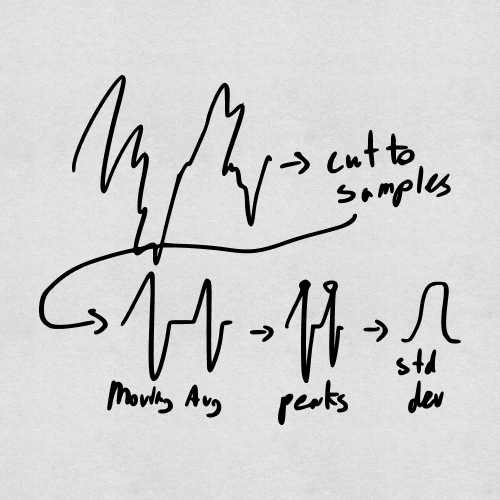 cut to
samples
Moving Avg
peaks
std
dev